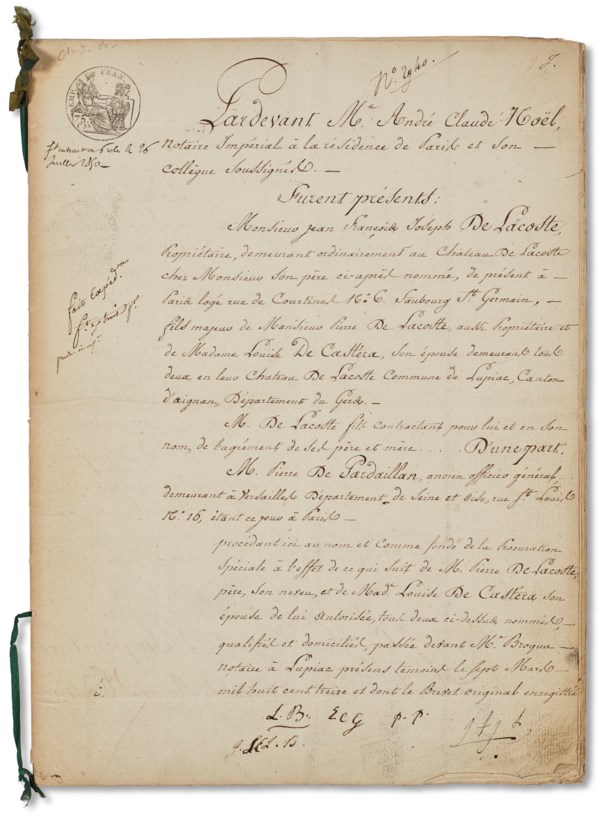 N.o 2940.
EMP. FRAN.
Pardevant M.e André Claude Noël,
Notaire Impérial à la résidence de Paris et Son —
Collègue Soussignés. —
Furent présents:
Monsieur Jean François Joseph De Lacoste,
Propriétaire, demeurant ordinairement au Chateau De Lacoste
chez Monsieur Son père ci-après nommé, de présent à —
Paris logé rue de Courtines N.o 6. Faubourg S.t Germain, —
fils majeur de Monsieur Pierre De Lacoste, aussi Propriétaire et
de Madame Louise De Castéra, Son épouse demeurant tous
deux en leur Chateau De Lacoste Commune de Lupiac, Canton
d'aignan, Département du Gers. —
M. De Lacoste fils contractant pour lui et en Son
nom, de l'agrément de Ses père et mère .... D'une part.
M. Pierre De Pardaillan, ancien officier général,
demeurant à Versailles Département de Seine et Oise, rue S.t Louis
N.o 16, étant ce jour à Paris —
procédant ici au nom et Comme fondé de la Procuration
Spéciale à l'effet de ce qui Suit de M. Pierre De Lacoste,
père, Son neveu, et de Mad.e Louise De Castéra Son
épouse de lui autorisée, tous deux ci-dessus nommés,
qualifiés et domiciliés, passée devant M.e Broqua —
notaire à Lupiac présens témoins le Sept Mars —
mil huit cent treize et dont le Brevet original enregistré
L. B. ECG p. p.
g. L. B